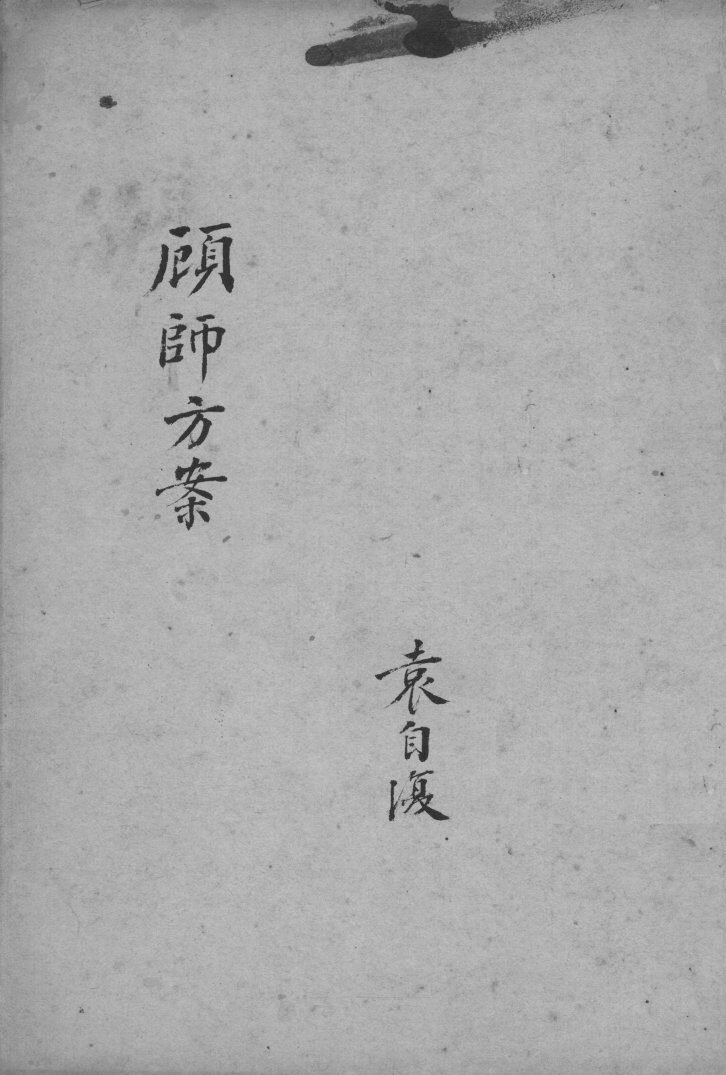 袁自復
顧師方案